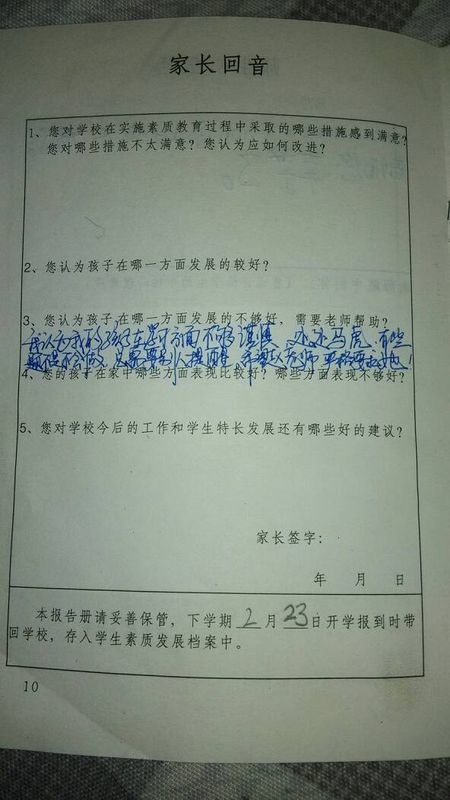 家长回音
1、您对学校在实施素质教育过程中采取的哪些措施感到满意?
您对哪些措施不太满意?您认为应如何改进?
2、您认为孩子在哪一方面发展的较好?
3、您认为孩子在哪一方面发展的不够好,需要老师帮助?
我认为我的孩子在学习方面不够谨慎,处处马虎,有些
题得不会做,只需要别人提醒,老师严格要求他!
4、您的孩子在家中哪些方面表现比较好?哪些方面表现不够好?
5、您对学校今后的工作和学生特长发展还有哪些好的建议?
家长签字:
年 月 日
本报告册请妥善保管,下学期2月23日开学报到时带
回学校,存入学生素质发展档案中。
10